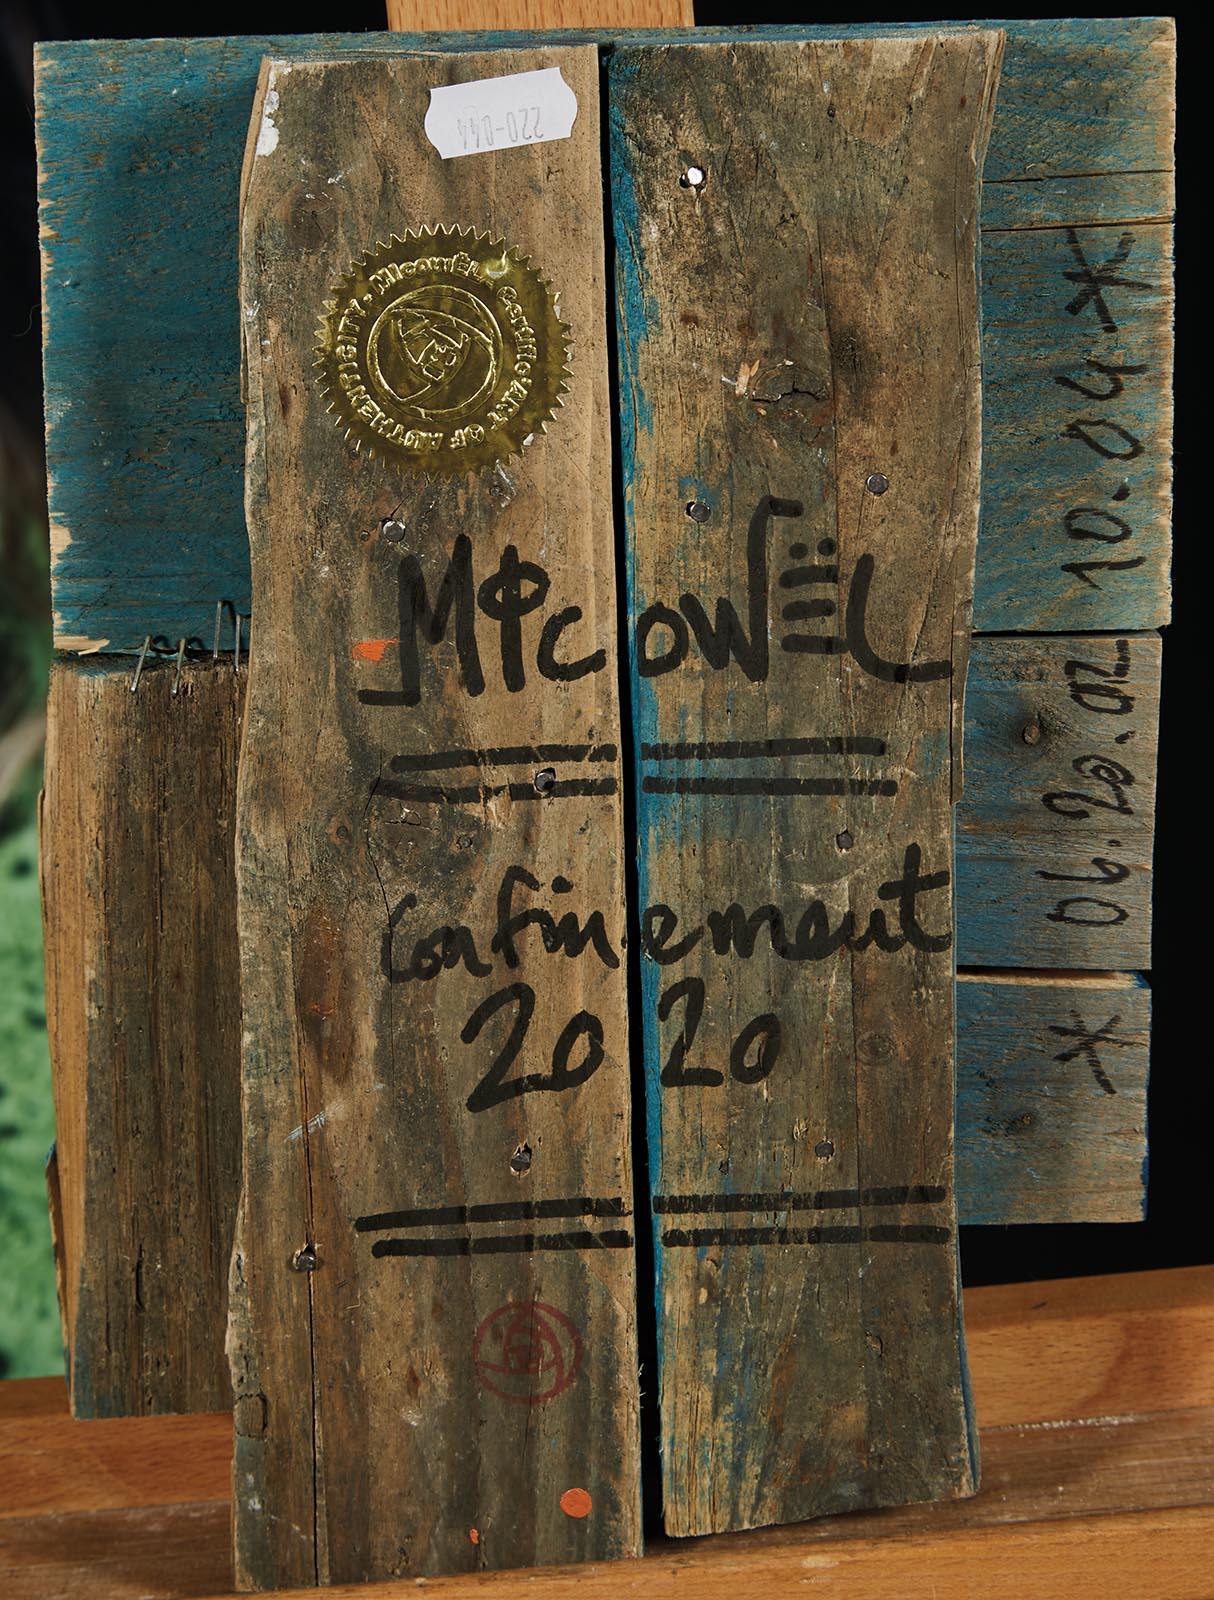 220-044
MICOWËL CertifD'ART OF AUTHENTICITY
MicoWËL
Confinement
2020
* 06.20.02 10.04 *